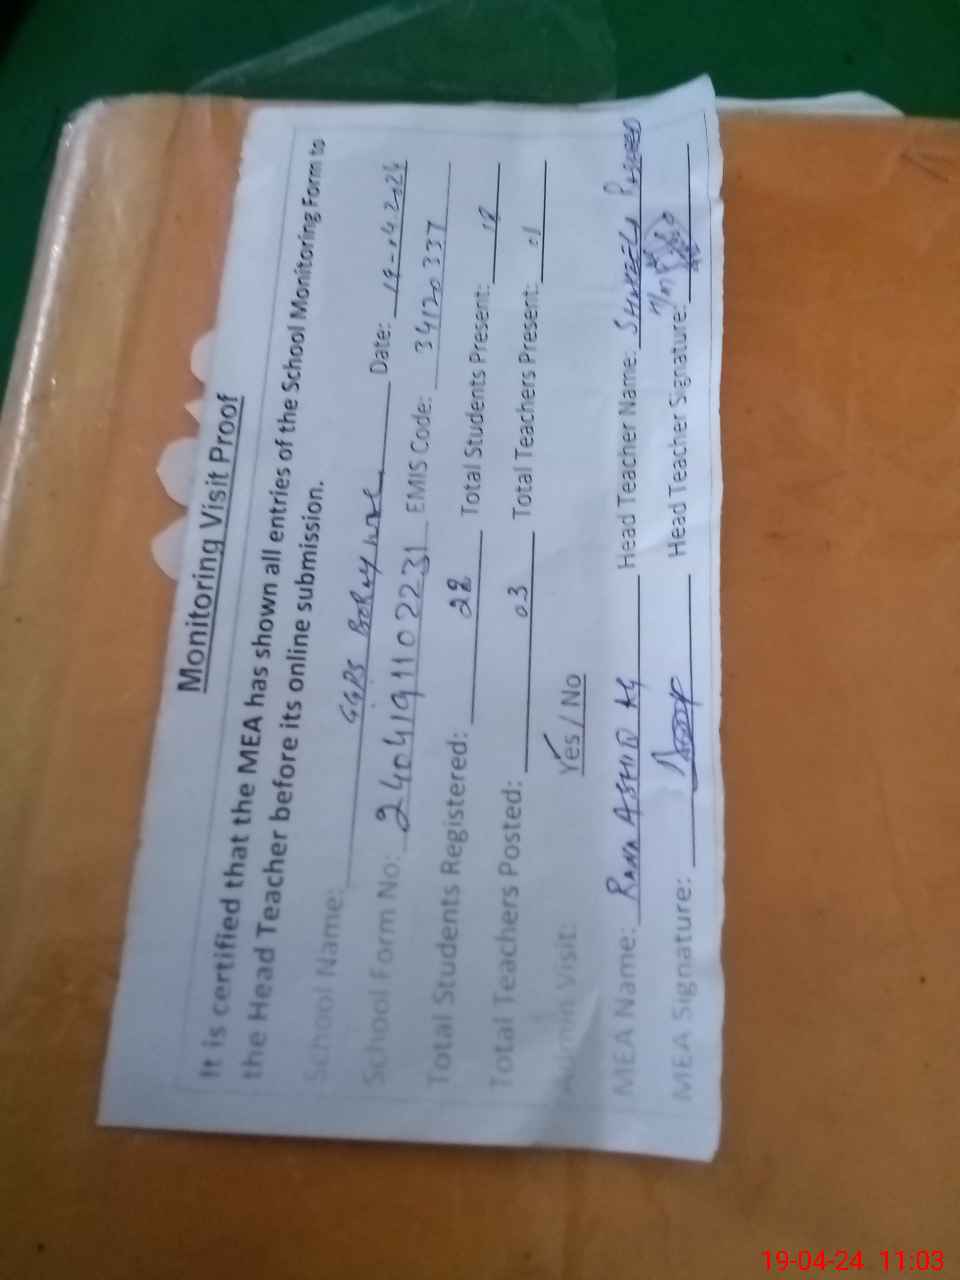 Monitoring Visit Proof
It is certified that the MEA has shown all entries of the School Monitoring Form to
the Head Teacher before its online submission.
School Name: GGPS Date: 19-04.2024
School Form No: 2404191102231 EMIS Code: 34120337
Total Students Registered: 28 Total Students Present: 18
Total Teachers Posted: 03 Total Teachers Present: 01
Admin Visit: Yes / No
MEA Name: RANA Head Teacher Name:
MEA Signature: Head Teacher Signature:
19-04-24 11:03